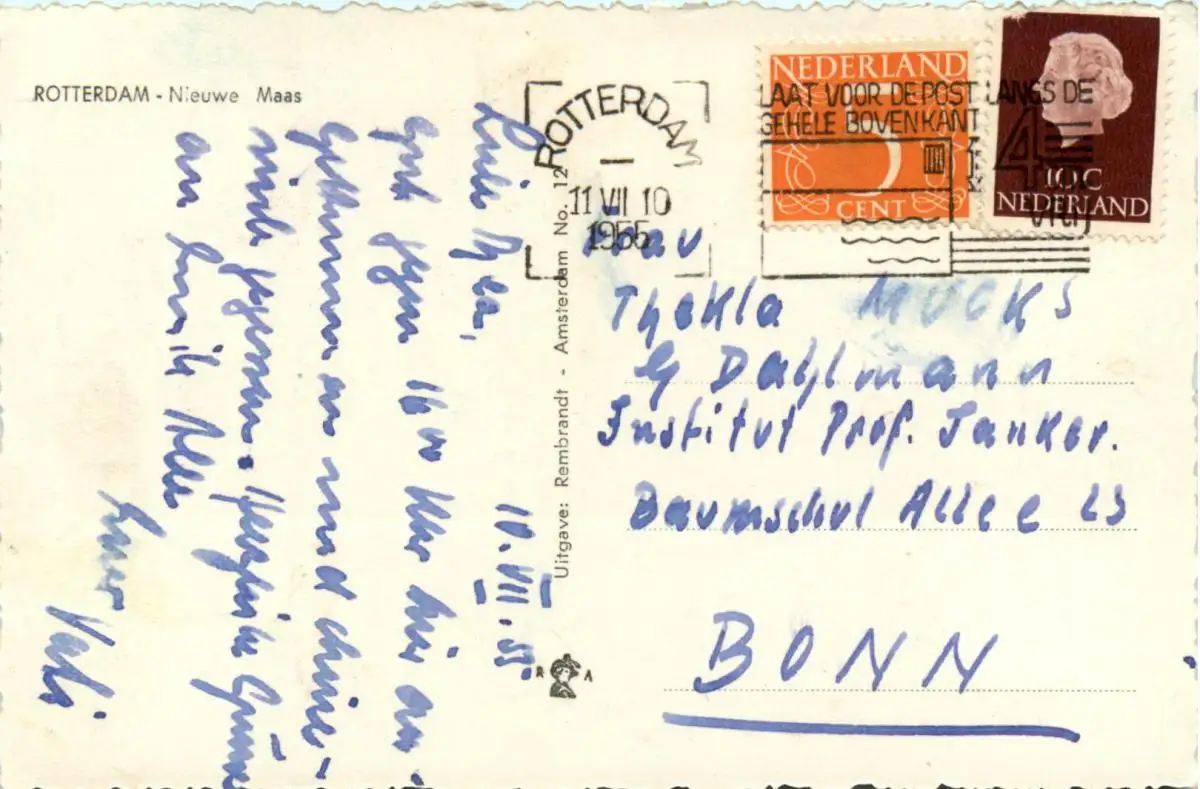 ROTTERDAM - Nieuwe Maas
Liebe
gut gegen 16 00 Uhr hier an-
gekommen und chine-
sisch gegessen. Herzliche Grüsse
an Alle
Euer Vati.
10. VII. 55.
Uitgave: Rembrandt - Amsterdam No. 12
R A
ROTTERDAM
11 VII 10
1955
LAAT VOOR DE POST LANGS DE
GEHELE BOVENKANT
4
vrij
NEDERLAND
5
CENT
10 C
NEDERLAND
Frau
Thekla MUCKS
Dahlmann
Institut Prof. Janker.
Baumschul Allee
BONN